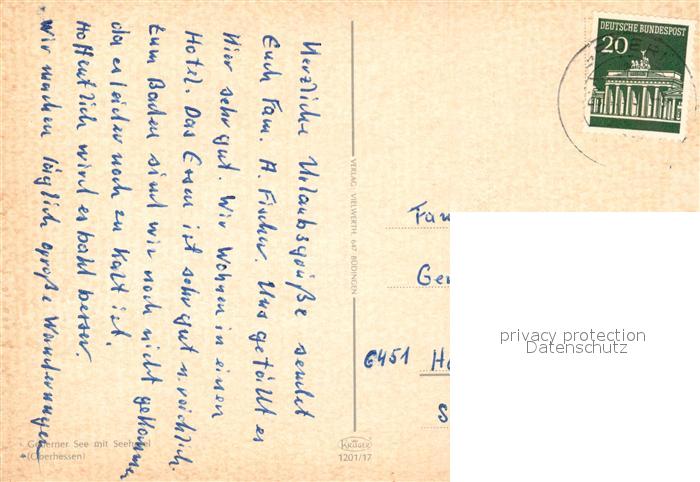 Herzliche Urlaubsgrüße sendet
Euch Fam. H. Fischer. Uns gefällt es
Hier sehr gut. Wir Wohnen in einen
Hotel. Das Essen ist sehr gut u. reichlich.
Zum Baden sind wir noch nicht gekommen
da es leider noch zu Kalt ist.
Hoffentlich wird es bald besser.
Wir machen täglich große Wanderungen
Gederner See mit Seehotel
(Oberhessen)
VERLAG: VIELWERTH, 647 BÜDINGEN
KRÜGER
1201/17
DEUTSCHE BUNDESPOST
20
Fam
Ger
6451 Ha
S
privacy protection
Datenschutz